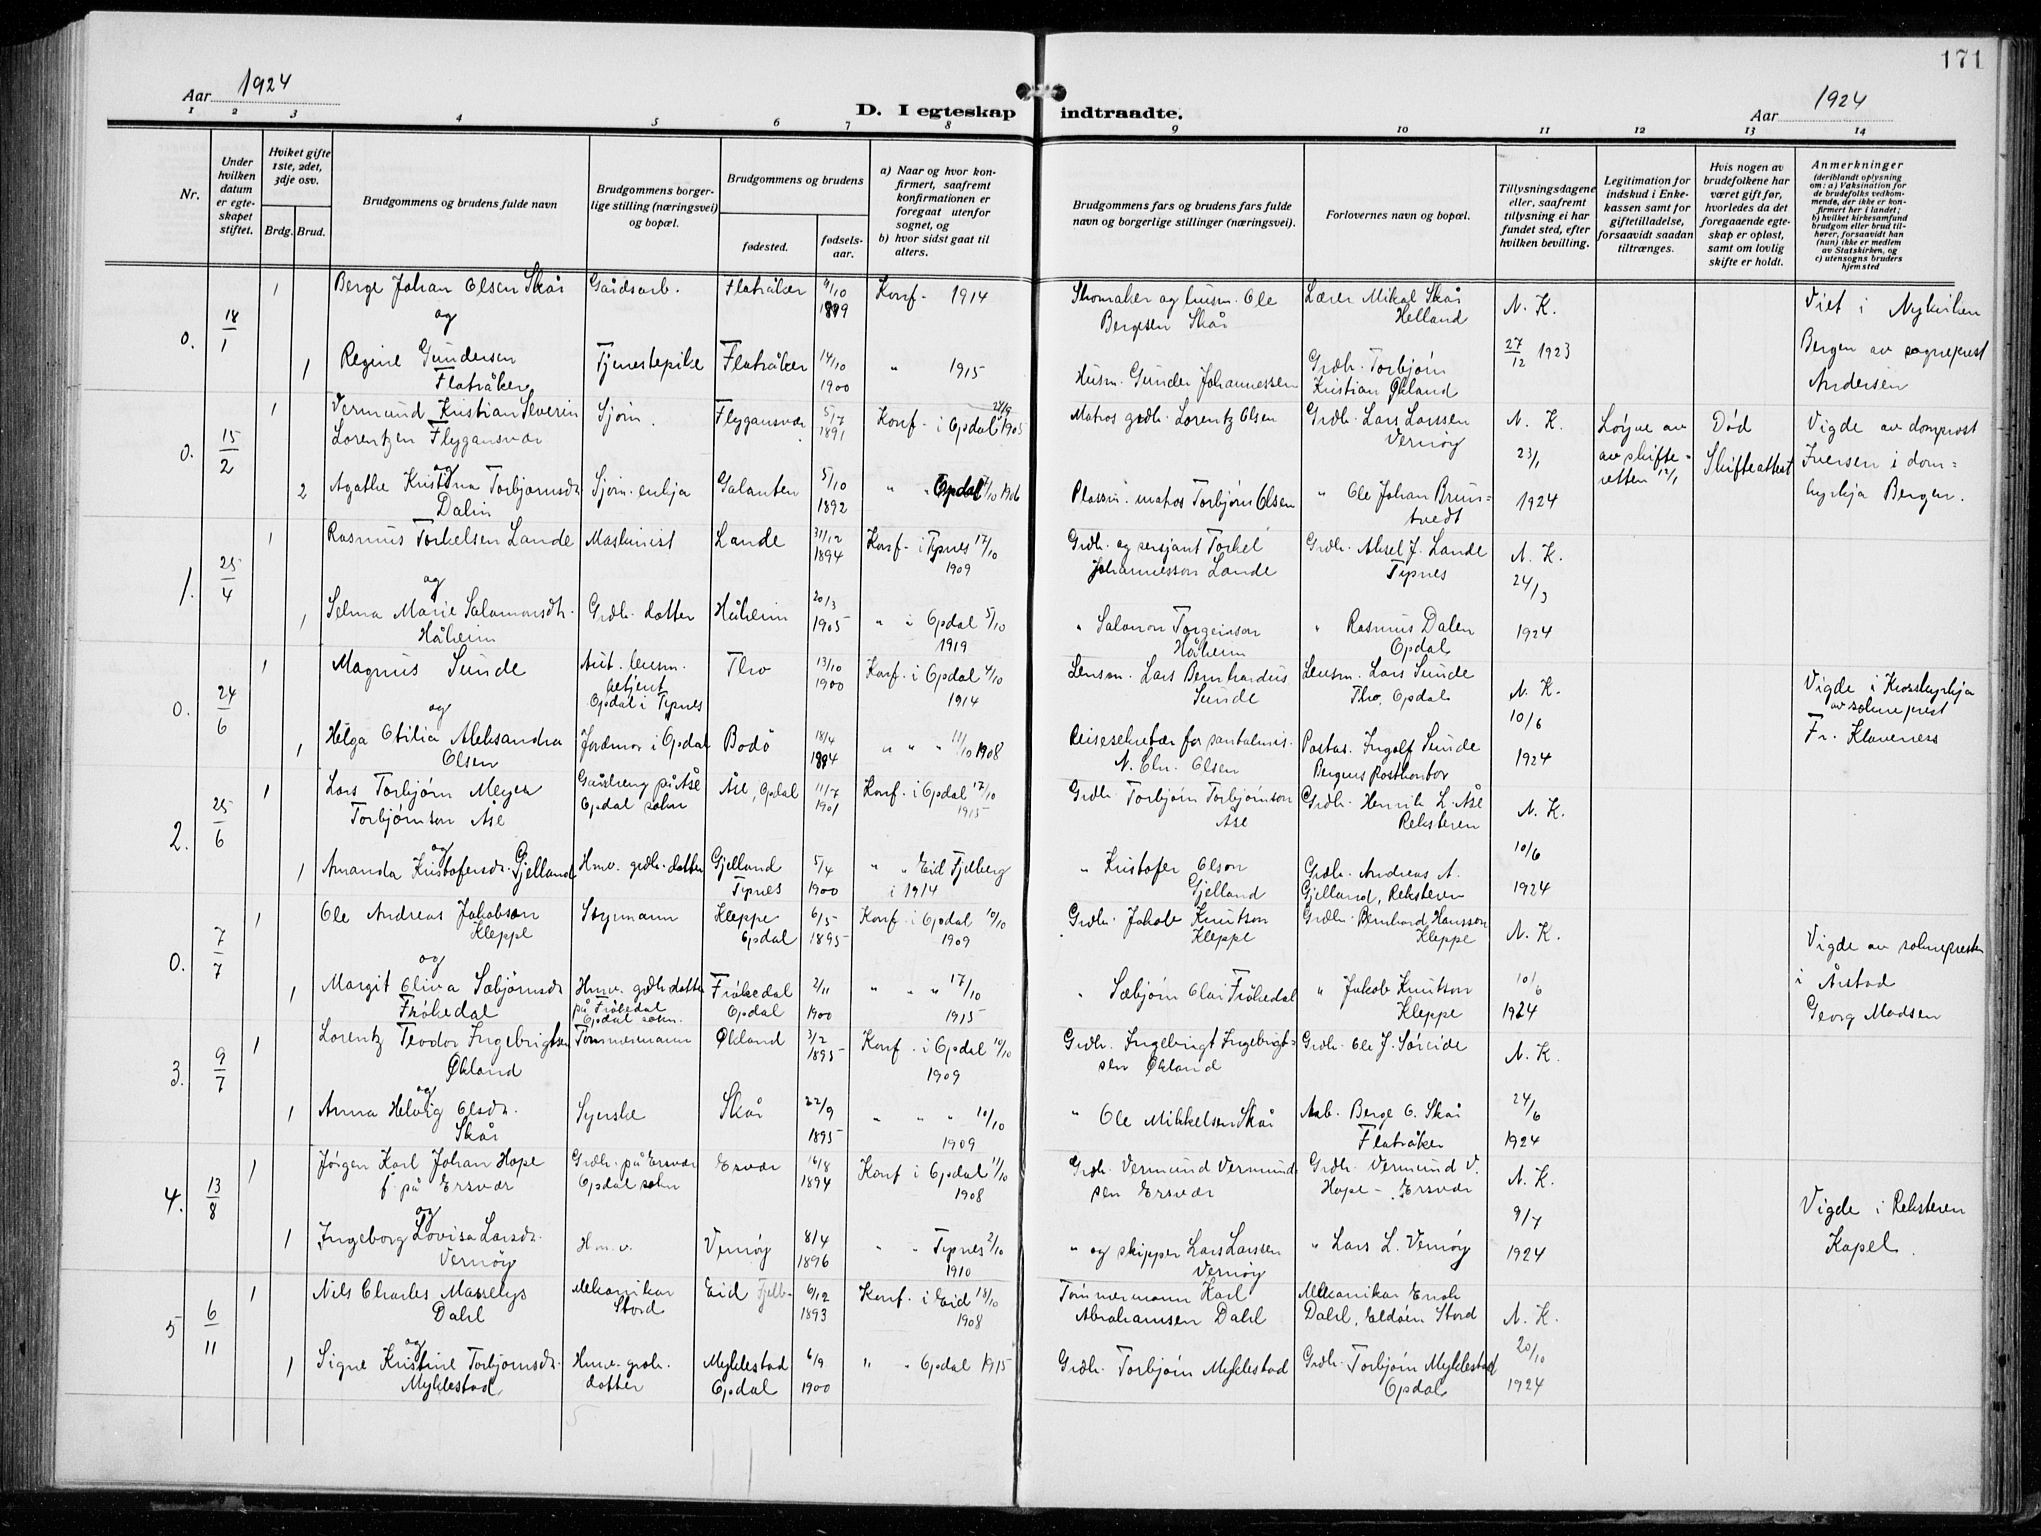 171
Aar 1924
D. I egteskap indtraadte.
Aar 1924
1 2 3 4 5 6 7 8 9 10 11 12 13 14
Nr.
Under hvilken datum er egteskapet stiftet.
Hviket gifte 1ste, 2det, 3dje osv.
Brdg. Brud.
Brudgommens og brudens fulde navn
Brudgommens borgerlige stilling (næringsvei) og bopæl.
Brudgommens og brudens
fødested.
fødselsaar.
a) Naar og hvor konfirmert, saafremt konfirmationen er foregaat utenfor sognet, og
b) hvor sidst gaat til alters.
Brudgommens fars og brudens fars fulde navn og borgerlige stillinger (næringsvei).
Forlovernes navn og bopæl.
Tillysningsdagene eller, saafremt tillysning ei har fundet sted, efter hvilken bevilling.
Legitimation for indskud i Enkekassen samt for giftetilladelse, forsaavidt saadan tiltrænges.
Hvis nogen av brudefolkene har været gift før, hvorledes da det foregaaende egteskap er opløst, samt om lovlig skifte er holdt.
Anmerkninger
(deriblandt oplysning om: a) Vaksination for de brudefolks vedkommende, der ikke er konfirmert her i landet; b) hvilket kirkesamfund brudgom eller brud tilhører, forsaavidt han (hun) ikke er medlem av Statskirken, og c) utensogns bruders hjemsted
0. 18/1
1 Berge Johan Olsen Skår Gårdsarb. Flatråker 9/10 1899 Konf. 1914 Skomaker og husm. Ole Bergesen Skår Lærer Mikal Skår Helland N. K. Viet i Nykirken
og
1 Regine Gundersen Flatråker Tjenestepike Flatråker 14/10 1900 " 1915 Husm. Gunder Johannessen Grdb. Torbjørn Kristian Økland 27/12 1923 Bergen av sogneprest Andersen
0. 15/2
1 Vermund Kristian Severin Lorentzen Flygansvær Sjøm. Flygansvær 5/7 1891 Konf. i Opdal 1905 Matros grdb. Lorentz Olsen Grdb. Lars Larssen Vernøy N. K. 23/1 1924 Løyve av skifteretten 12/1 Død Skifteattest Vigde av domprost Iversen i domkyrkja Bergen.
og
2 Agathe Kristina Torbjørnsdr. Dalin Sjøm. enkja Galanten 5/10 1892 " Opdal 1906 Plassm. matros Torbjørn Olsen " Ole Johan Bruntvedt
1. 25/4
1 Rasmus Torkelsen Lande Maskinist Lande 31/12 1894 Konf. i Tysnes 17/10 1909 Grdb. og sersjant Torkel Johannesson Lande Grdb. Aksel J. Lande Tysnes N. K. 24/3 1924
og
1 Selma Marie Salamonsdtr. Håheim Grdb. datter Håheim 20/3 1905 " i Opdal 5/10 1919 " Salamon Torgeirson Håheim " Rasmus Dalen Opdal
0. 24/6
1 Magnus Sunde Aut. lensm. betjent Opdal i Tysnes Tho 13/10 1900 Konf. i Opdal 4/10 1914 Lensm. Lars Bernhardus Sunde Lensm. Lars Sunde Tho, Opdal N. K. 10/6 1924 Vigde i Krosskyrkja av soknеprest Fr. Klaveness
og
1 Helga Otilia Aleksandra Olsen Jordmor i Opdal Bodö 18/4 1894 " " " 11/10 1908 Reisesekretær for santalmis. N. Chr. Olsen Postas. Ingolf Sunde Bergens postkontor
2. 25/6
1 Lars Torbjørn Meyer Torbjørnson Åse Gardbreng på Åse Opdal sokn Åse, Opdal 11/7 1901 Konf. i Opdal 17/10 1915 Grdb. Torbjørn Torbjørnson Åse Grdb. Henrik L. Åse Reksteren N. K. 10/6 1924
og
1 Amanda Kristofersdr. Gjelland Hmv. grdb. datter Gjelland Tysnes 5/4 1900 " " Eid Fjelberg i 1914 " Kristofer Olson Gjelland Grdb. Andreas A. Gjelland, Reksteren
0. 7/7
1 Ole Andreas Jakobson Kleppe Styrmann Kleppe Opdal 6/5 1895 Konf. i Opdal 10/10 1909 Grdb. Jakob Knutson Kleppe Grdb. Bernhard Hansson Kleppe N. K. 10/6 1924 Vigde av soknepresten i Årstad Georg Madsen
og
1 Margit Oliva Sæbjørnsdr. Frøkedal Hmv. grdb. datter på Frøkedal Opdal sokn. Frøkedal Opdal 2/11 1900 " " " 17/10 1915 " Sæbjørn Olai Frøkedal " Jakob Knutson Kleppe
3. 9/7
1 Lorentz Teodor Ingebrigtsen Økland Tømmermann Økland 3/2 1895 Konf. i Opdal 10/10 1909 Grdb. Ingebrigt Ingebrigtsen Økland Grdb. Ole J. Søreide N. K. 24/6 1924
og
1 Anna Helvig Olsdr. Skår Syerske Skår 22/9 1895 " " " 10/10 1909 " Ole Mikkelsen Skår Arb. Berge O. Skår Flatråker
4. 13/8
1 Jørgen Karl Johan Hope f. på Ersvær Grdb. på Ersvær Opdal sokn Ersvær 16/8 1894 Konf i Opdal 11/10 1908 Grdb. Vermund Vermundsen Ersvær Grdb. Vermund V. Hope - Ersvær N. K. 9/7 1924 Vigde i Reksteren Kapel.
og
1 Ingeborg Lovisa Larsdr. Vernøy Hm.v. Vernøy 8/4 1896 " " Tysnes 2/10 1910 " og skipper Lars Larssen Vernøy " Lars L. Vernøy
5 6/11
1 Nils Charles Masselys Dahl Mekanikar Stord Eid Fjelb. 6/12 1893 Konf. i Eid 18/10 1908 Tømmermann Karl Abrahamsen Dahl Mekanikar Enok Dahl, Eldøen Stord N. K. 20/10 1924
og
1 Signe Kristine Torbjørnsdr. Myklestad Hmv. grdb. datter Myklestad Opdal 6/9 1900 " " Opdal 1915 Grdb. Torbjørn Myklestad Grdb. Torbjørn Myklestad Opdal